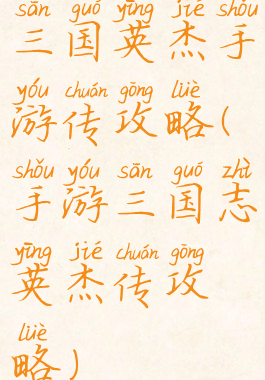 sān guó yīng jié shǒu
三国英杰手
yóu chuán gōng lüè
游传攻略(
shǒu yóu sān guó zhì
手游三国志
yīng jié chuán gōng
英杰传攻
lüè
略)